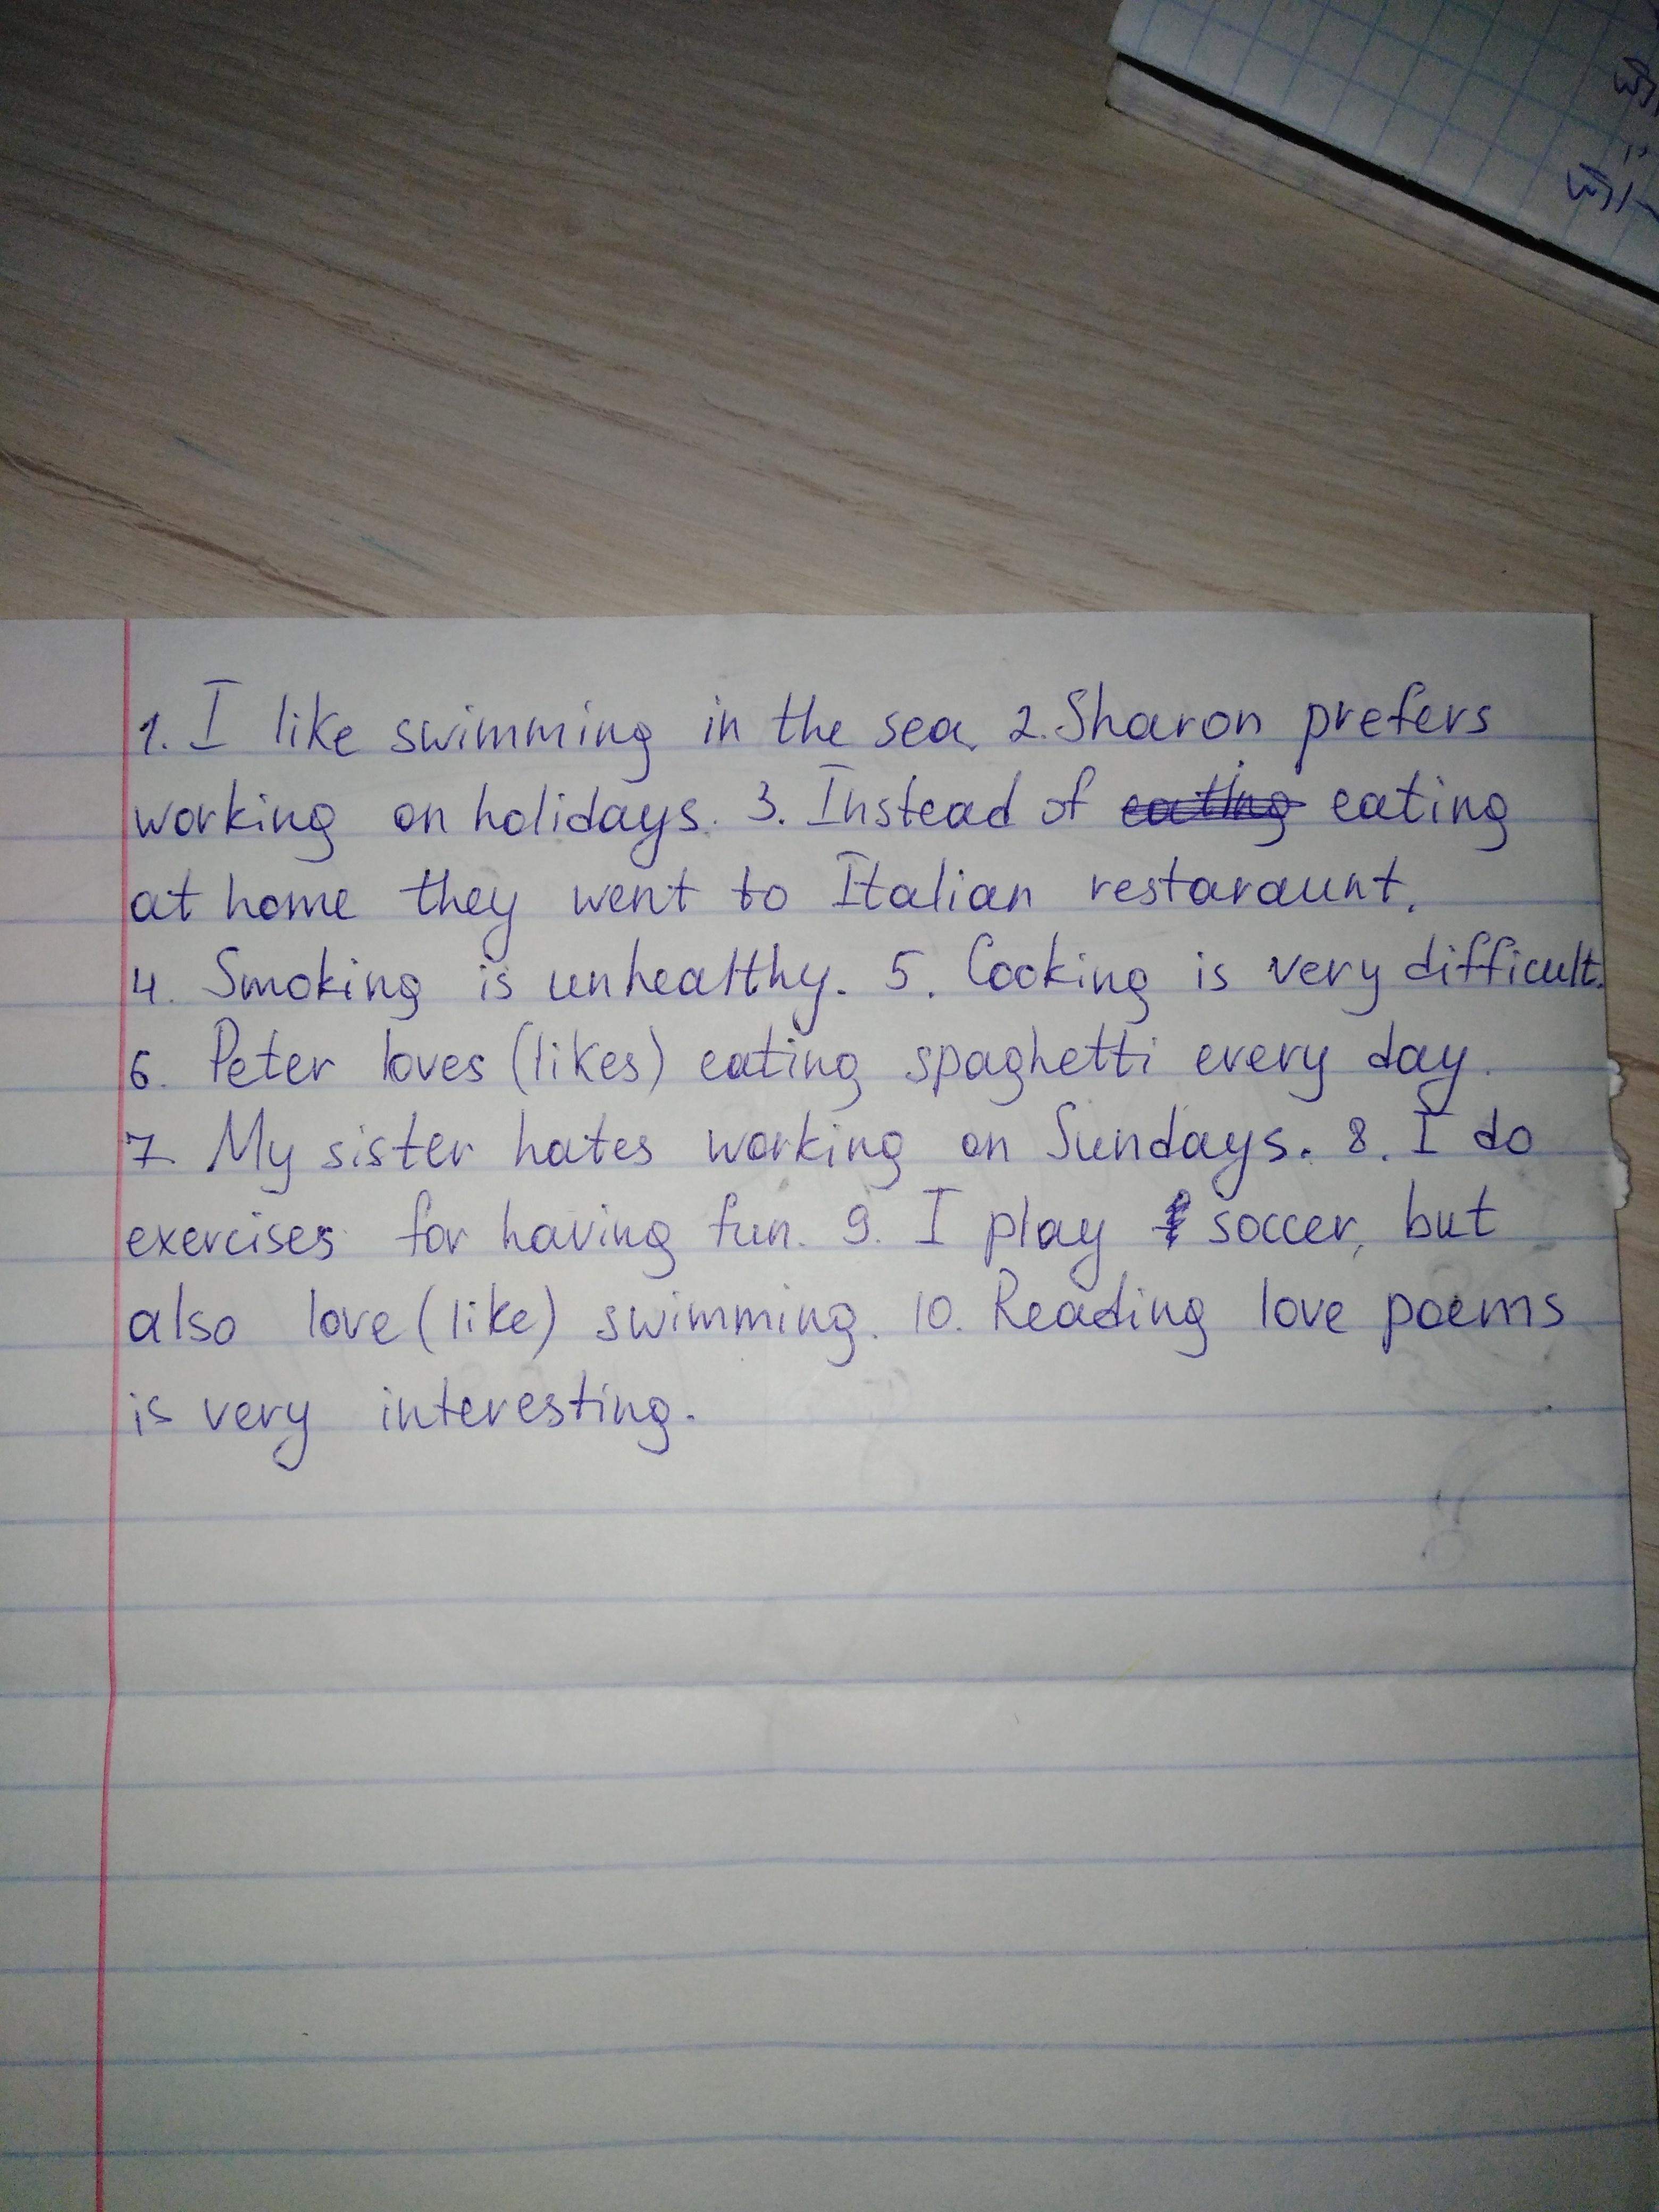 1. I like swimming in the sea. 2. Sharon prefers
working on holidays. 3. Instead of eating eating
at home they went to Italian restaraunt.
4. Smoking is unhealthy. 5. Cooking is very difficult.
6. Peter loves (likes) eating spaghetti every day.
7. My sister hates working on Sundays. 8. I do
exercises for having fun. 9. I play soccer, but
also love (like) swimming. 10. Reading love poems
is very interesting.